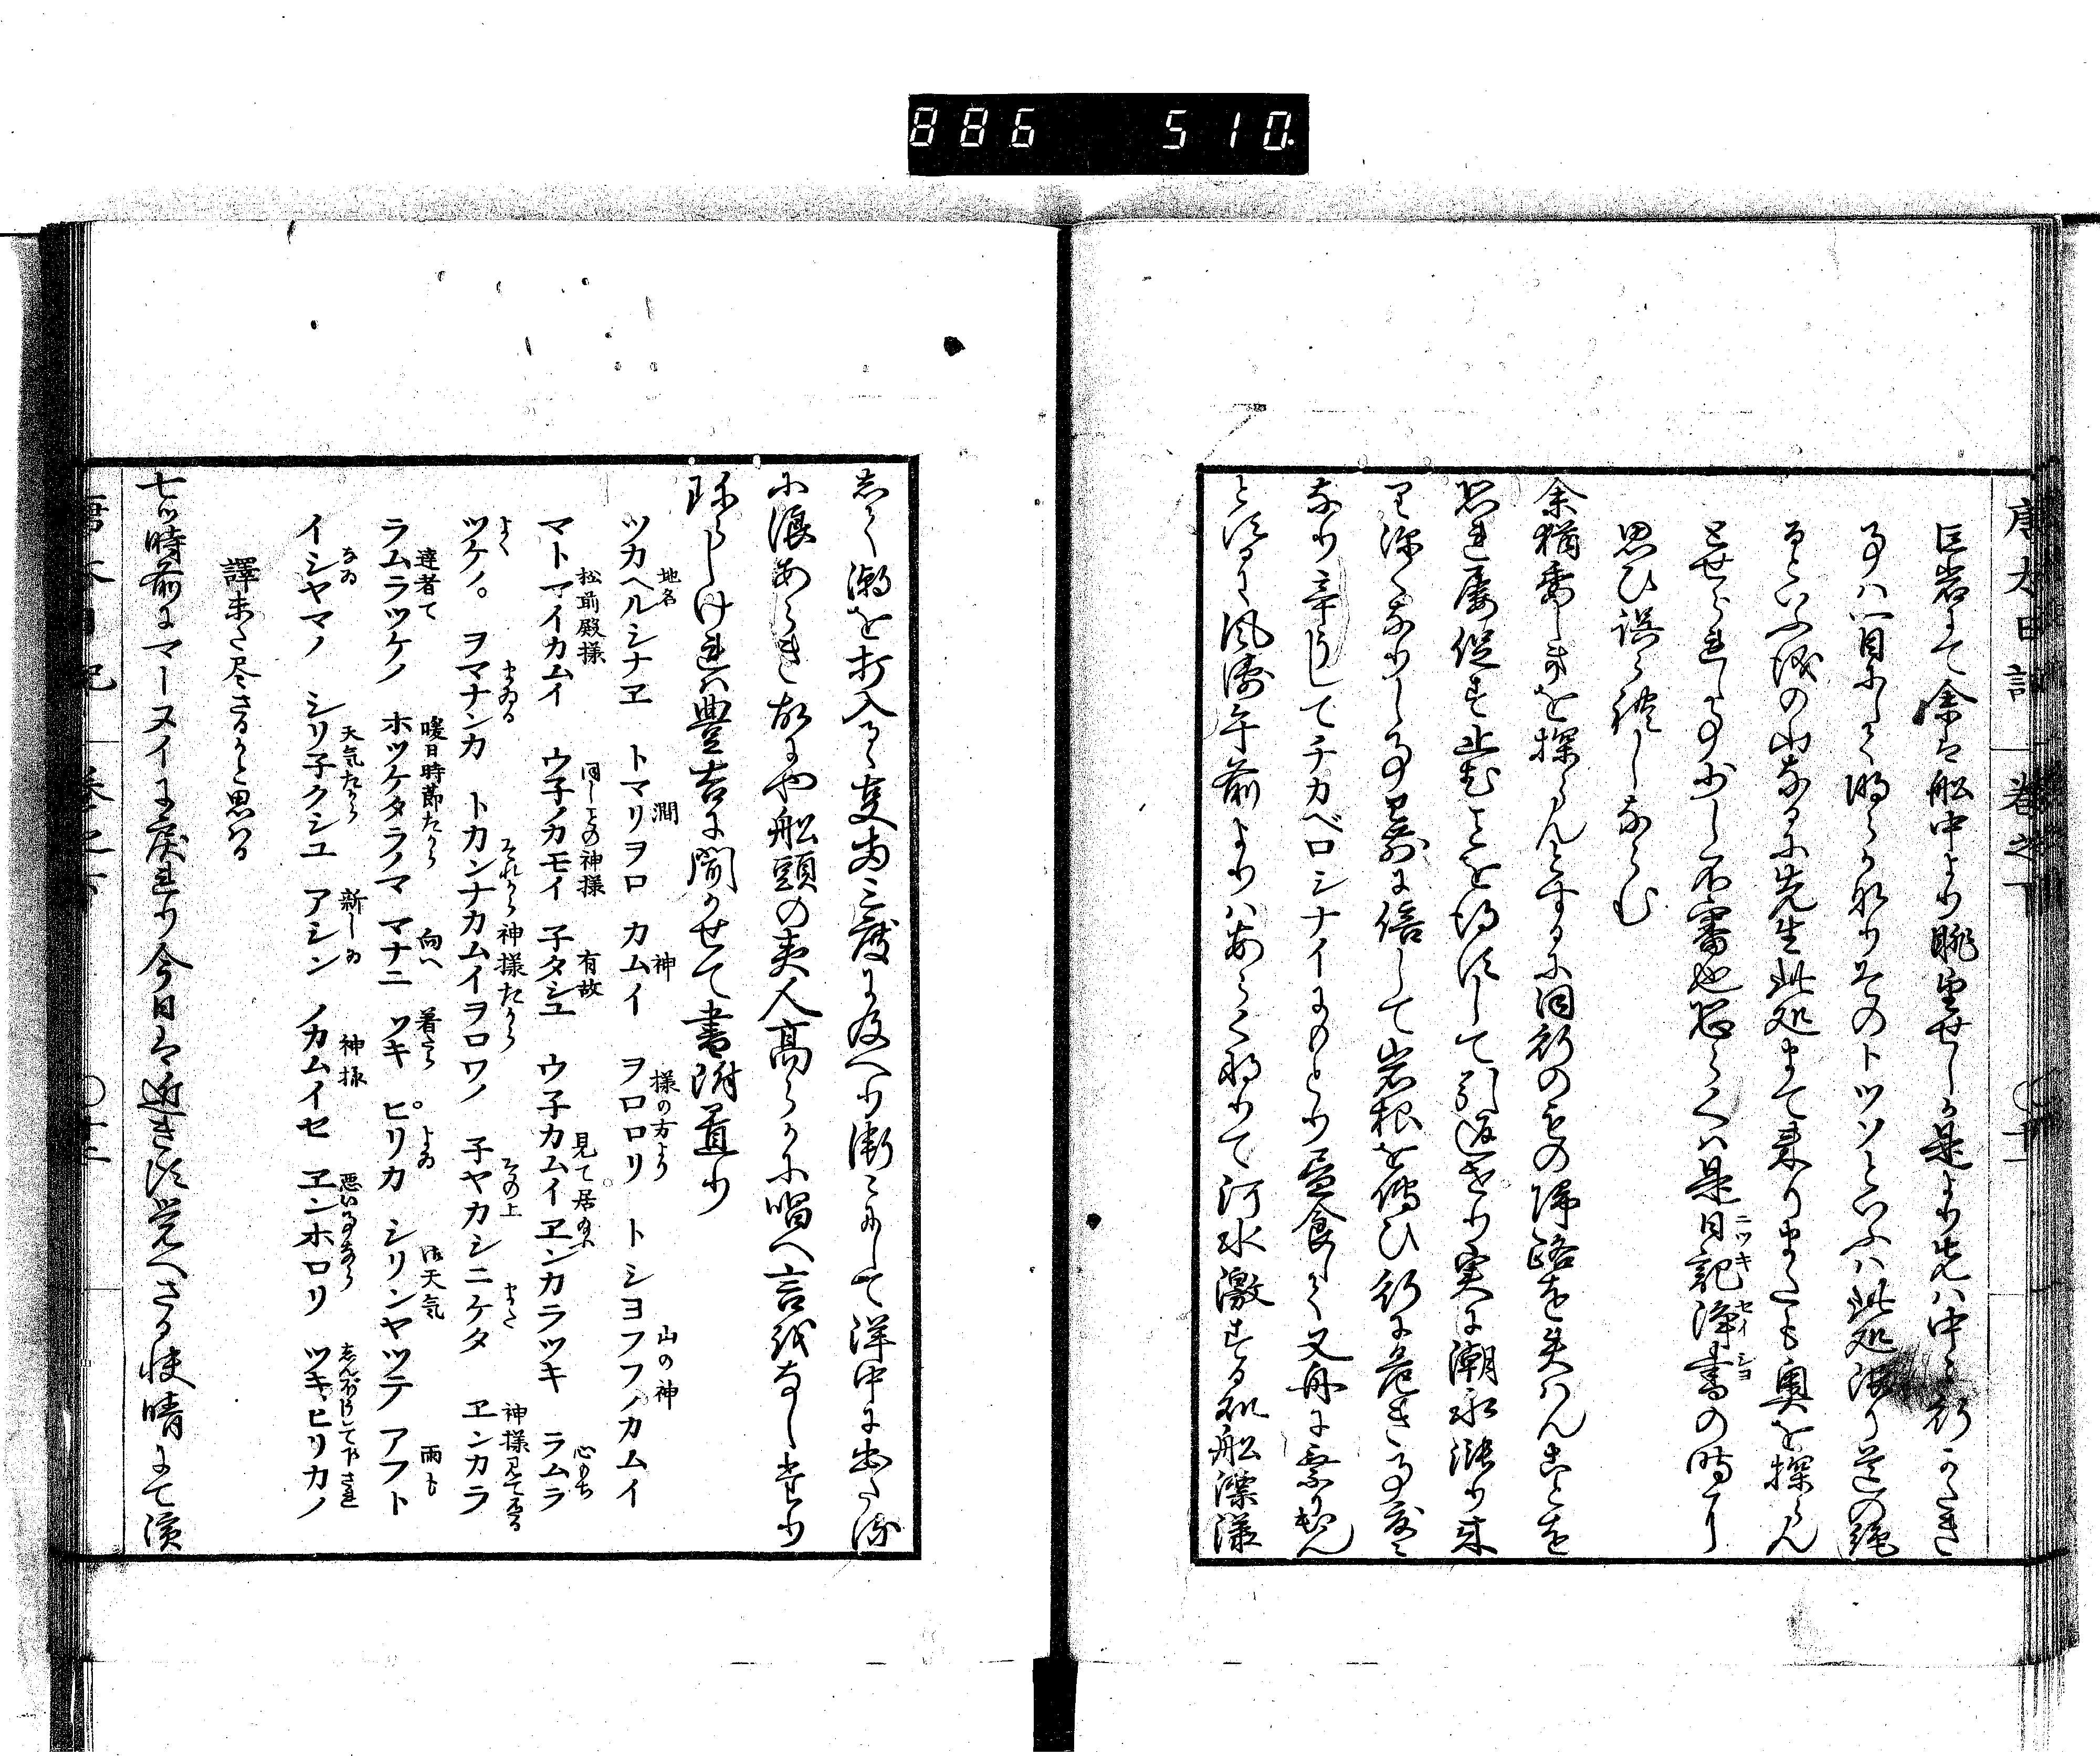 886 510
唐太日記 巻之下
巨岩にて余は船中より眺望せしか是より先ハ中々行へき
事ハ一目にして明らかなりそのトツソといふハ此処限り道の絶
るといふ儀の山なるに先生此処まて来りまたも奥を探らん
とせられし事少し不審也恐らくハ是日記浄書の時に
ニツキ セイシヨ
思ひ誤られしならむ
余猶委しきを探らんとするに同行のもの帰路を失はんことを
恐れ屡促す止むことを得すして引返せり実に潮水漲り来
り深くなりし事最前に倍して岩根を伝ひ行に危き事度々
なり辛うしてチカベロシナイにもとり昼食して又舟に乗りけん
とするに風濤午前よりハあらくなりて河水激する処船漂漾
しく潮を打入るゝ事両三度に及へり漸くにして洋中に出たるに
小浪あらき故にや船頭の夷人高らかに唱へ言をなし出せり
珍らしけれハ豊吉に聞かせて書附置り
地名 澗 神 様の方より 山の神
ツカヘルシナヱ トマリヲロ カムイ ヲロロリ トシヨフフノカムイ
松前殿様 同しことの神様 有故 見て居 心もち
マトマイカムイ ウ子ノカモイ 子タシユ ウ子カムイヱンカラツキ ラムラ
よく まゐる それから神様たから その上 また 神様見て居る
ツケノ。 ヲマナンカ トカンナカムイヲロワノ 子ヤカシニケタ ヱンカラ
達者て 暖日時節たから 向へ 着たら よゐ 天気 雨も
ラムラツケノ ホツケタラノマ マナニ ツキ ピリカ シリンヤツテ アフト
なゐ 天気たから 新しゐ 神様 悪い事なら
イシヤマノ シリ子クシユ アシン ノカムイセ ヱンホロリ ツキ、ヒリカノ
譯未た尽さるかと思はる
七ツ時前にマーヌイに戻れり今日は近きに覚へさる快晴にて濱